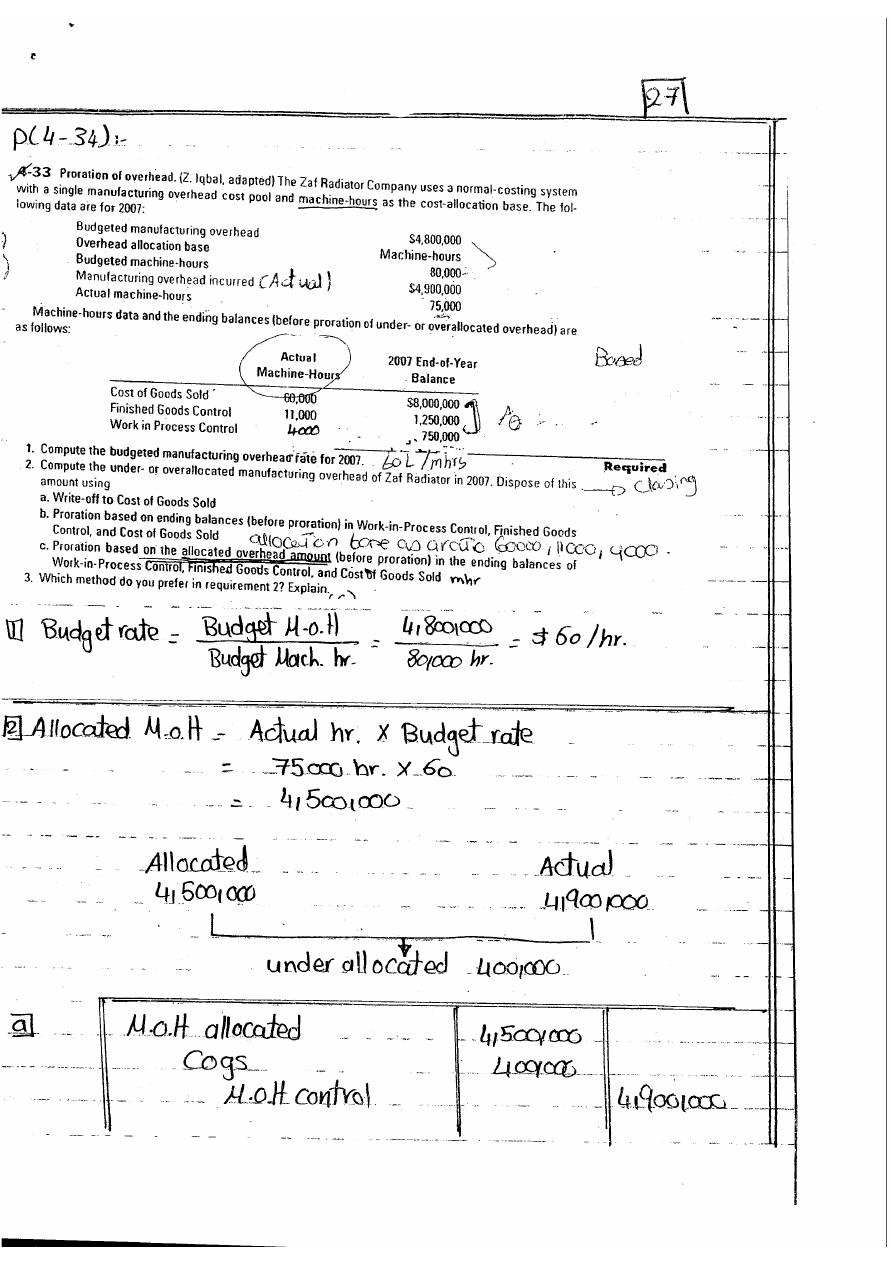 27
P(4-34):-
4-33 Proration of overhead. (Z. Iqbal, adapted) The Zaf Radiator Company uses a normal-costing system
with a single manufacturing overhead cost pool and machine-hours as the cost-allocation base. The fol-
lowing data are for 2007:
Budgeted manufacturing overhead $4,800,000
Overhead allocation base Machine-hours
Budgeted machine-hours 80,000
Manufacturing overhead incurred (Actual) $4,900,000
Actual machine-hours 75,000
Machine-hours data and the ending balances (before proration of under- or overallocated overhead) are
as follows:
Based
Actual 2007 End-of-Year
Machine-Hours Balance
Cost of Goods Sold 60,000 $8,000,000
Finished Goods Control 11,000 1,250,000
Work in Process Control 4000 750,000
1. Compute the budgeted manufacturing overhead rate for 2007.
Required
2. Compute the under- or overallocated manufacturing overhead of Zaf Radiator in 2007. Dispose of this
amount using
a. Write-off to Cost of Goods Sold
b. Proration based on ending balances (before proration) in Work-in-Process Control, Finished Goods
Control, and Cost of Goods Sold
60000, 11000, 4000.
c. Proration based on the allocated overhead amount (before proration) in the ending balances of
Work-in-Process Control, Finished Goods Control, and Cost of Goods Sold mhr
3. Which method do you prefer in requirement 2? Explain.
1 Budget rate = Budget M.o.H / Budget Mach. hr. = 4,800,000 / 80,000 hr. = $ 60 /hr.
2 Allocated M.o.H = Actual hr. X Budget rate
= 75000 hr. X 60
= 4,500,000
Allocated Actual
4,500,000 4,900,000
under allocated 400,000
a M.o.H allocated 4,500,000
Cogs 400,000
M.o.H control 4,900,000